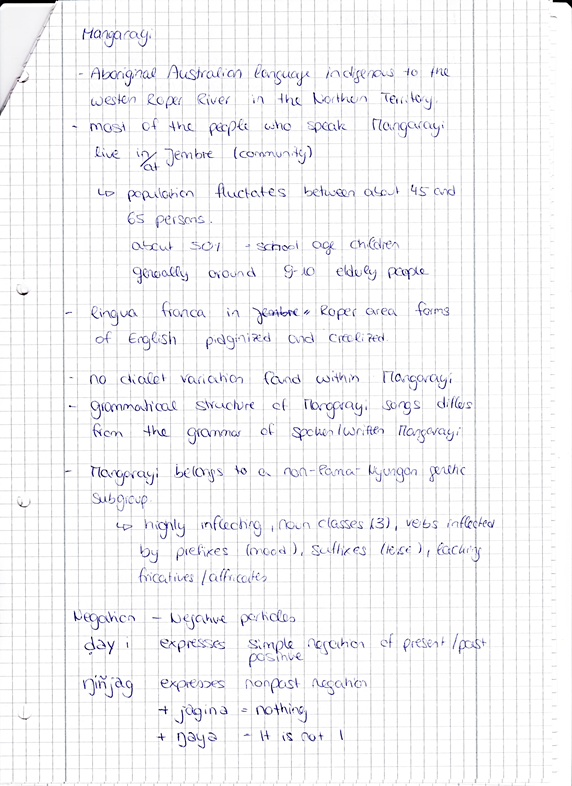 Mangarayi
- Aboriginal Australian language indigenous to the
Western Roper River in the Northern Territory.
- most of the people who speak Mangarayi
live in/at Jembre (community)
↳ population fluctates between about 45 and
65 persons.
about 50% - school age children
generally around 9-10 elderly people
- lingua franca in Jembre = Roper area forms
of English pidginized and creolized
- no dialet variation found within Mangarayi
- grammatical structure of Mangarayi songs differs
from the grammar of spoken/written Mangarayi
- Mangarayi belongs to a non-Pama-Nyungan genetic
subgroup
↳ highly inflecting, noun classes (3), verbs inflected
by prefixes (mood), suffixes (tense), lacking
fricatives/affricates
Negation - Negative particles
ḍayi expresses simple negation of present/past
positive
ŋiñjag expresses nonpast negation
+ jagina = nothing
+ ŋaya - It is not I